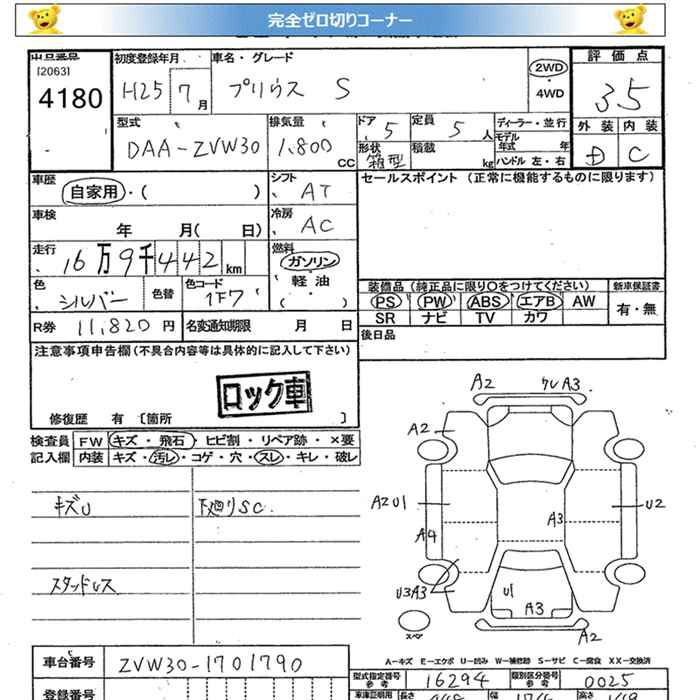 完全ゼロ切りコーナー
出品番号
[2063]
4180
初度登録年月
H25 7 月
車名・グレード
プリウス S
2WD
・
4WD
評価点
3.5
外装 内装
D C
型式
DAA-ZVW30
排気量
1,800 CC
ドア 5
形状 箱型
定員 5 人
積載 kg
ディーラー・並行
モデル年式 年
ハンドル 左・右
車歴
自家用・( )
シフト AT
セールスポイント (正常に機能するものに限ります)
車検
年 月( 日)
冷房 AC
走行
16万9千442 km
燃料
ガソリン
・
軽油
( )
色
シルバー
色替
色コード
1F7
装備品 (純正品に限り○をつけてください)
PS PW ABS エアB AW
SR ナビ TV カワ
新車保証書
有・無
R券 11,820 円
名変通知期限 月 日
後日品
注意事項申告欄 (不具合内容等は具体的に記入して下さい)
ロック車
修復歴 有 [箇所 ]
検査員
記入欄
FW キズ・飛石・ヒビ割・リペア跡・×要
内装 キズ・汚レ・コゲ・穴・スレ・キレ・破レ
キズU
下廻りSC
スタッドレス
A2
A3
A2
A2 U1
U2
A3
A4
U3A3
U1
A3
スペア
A2
A-キズ E-エクボ U-凹み W-補修跡 S-サビ C-腐食 XX-交換済
車台番号 ZVW30-1701790
型式指定番号
参考
16294
類別区分番号
参考
0025
登録番号
車庫証明用
長さ
高さ